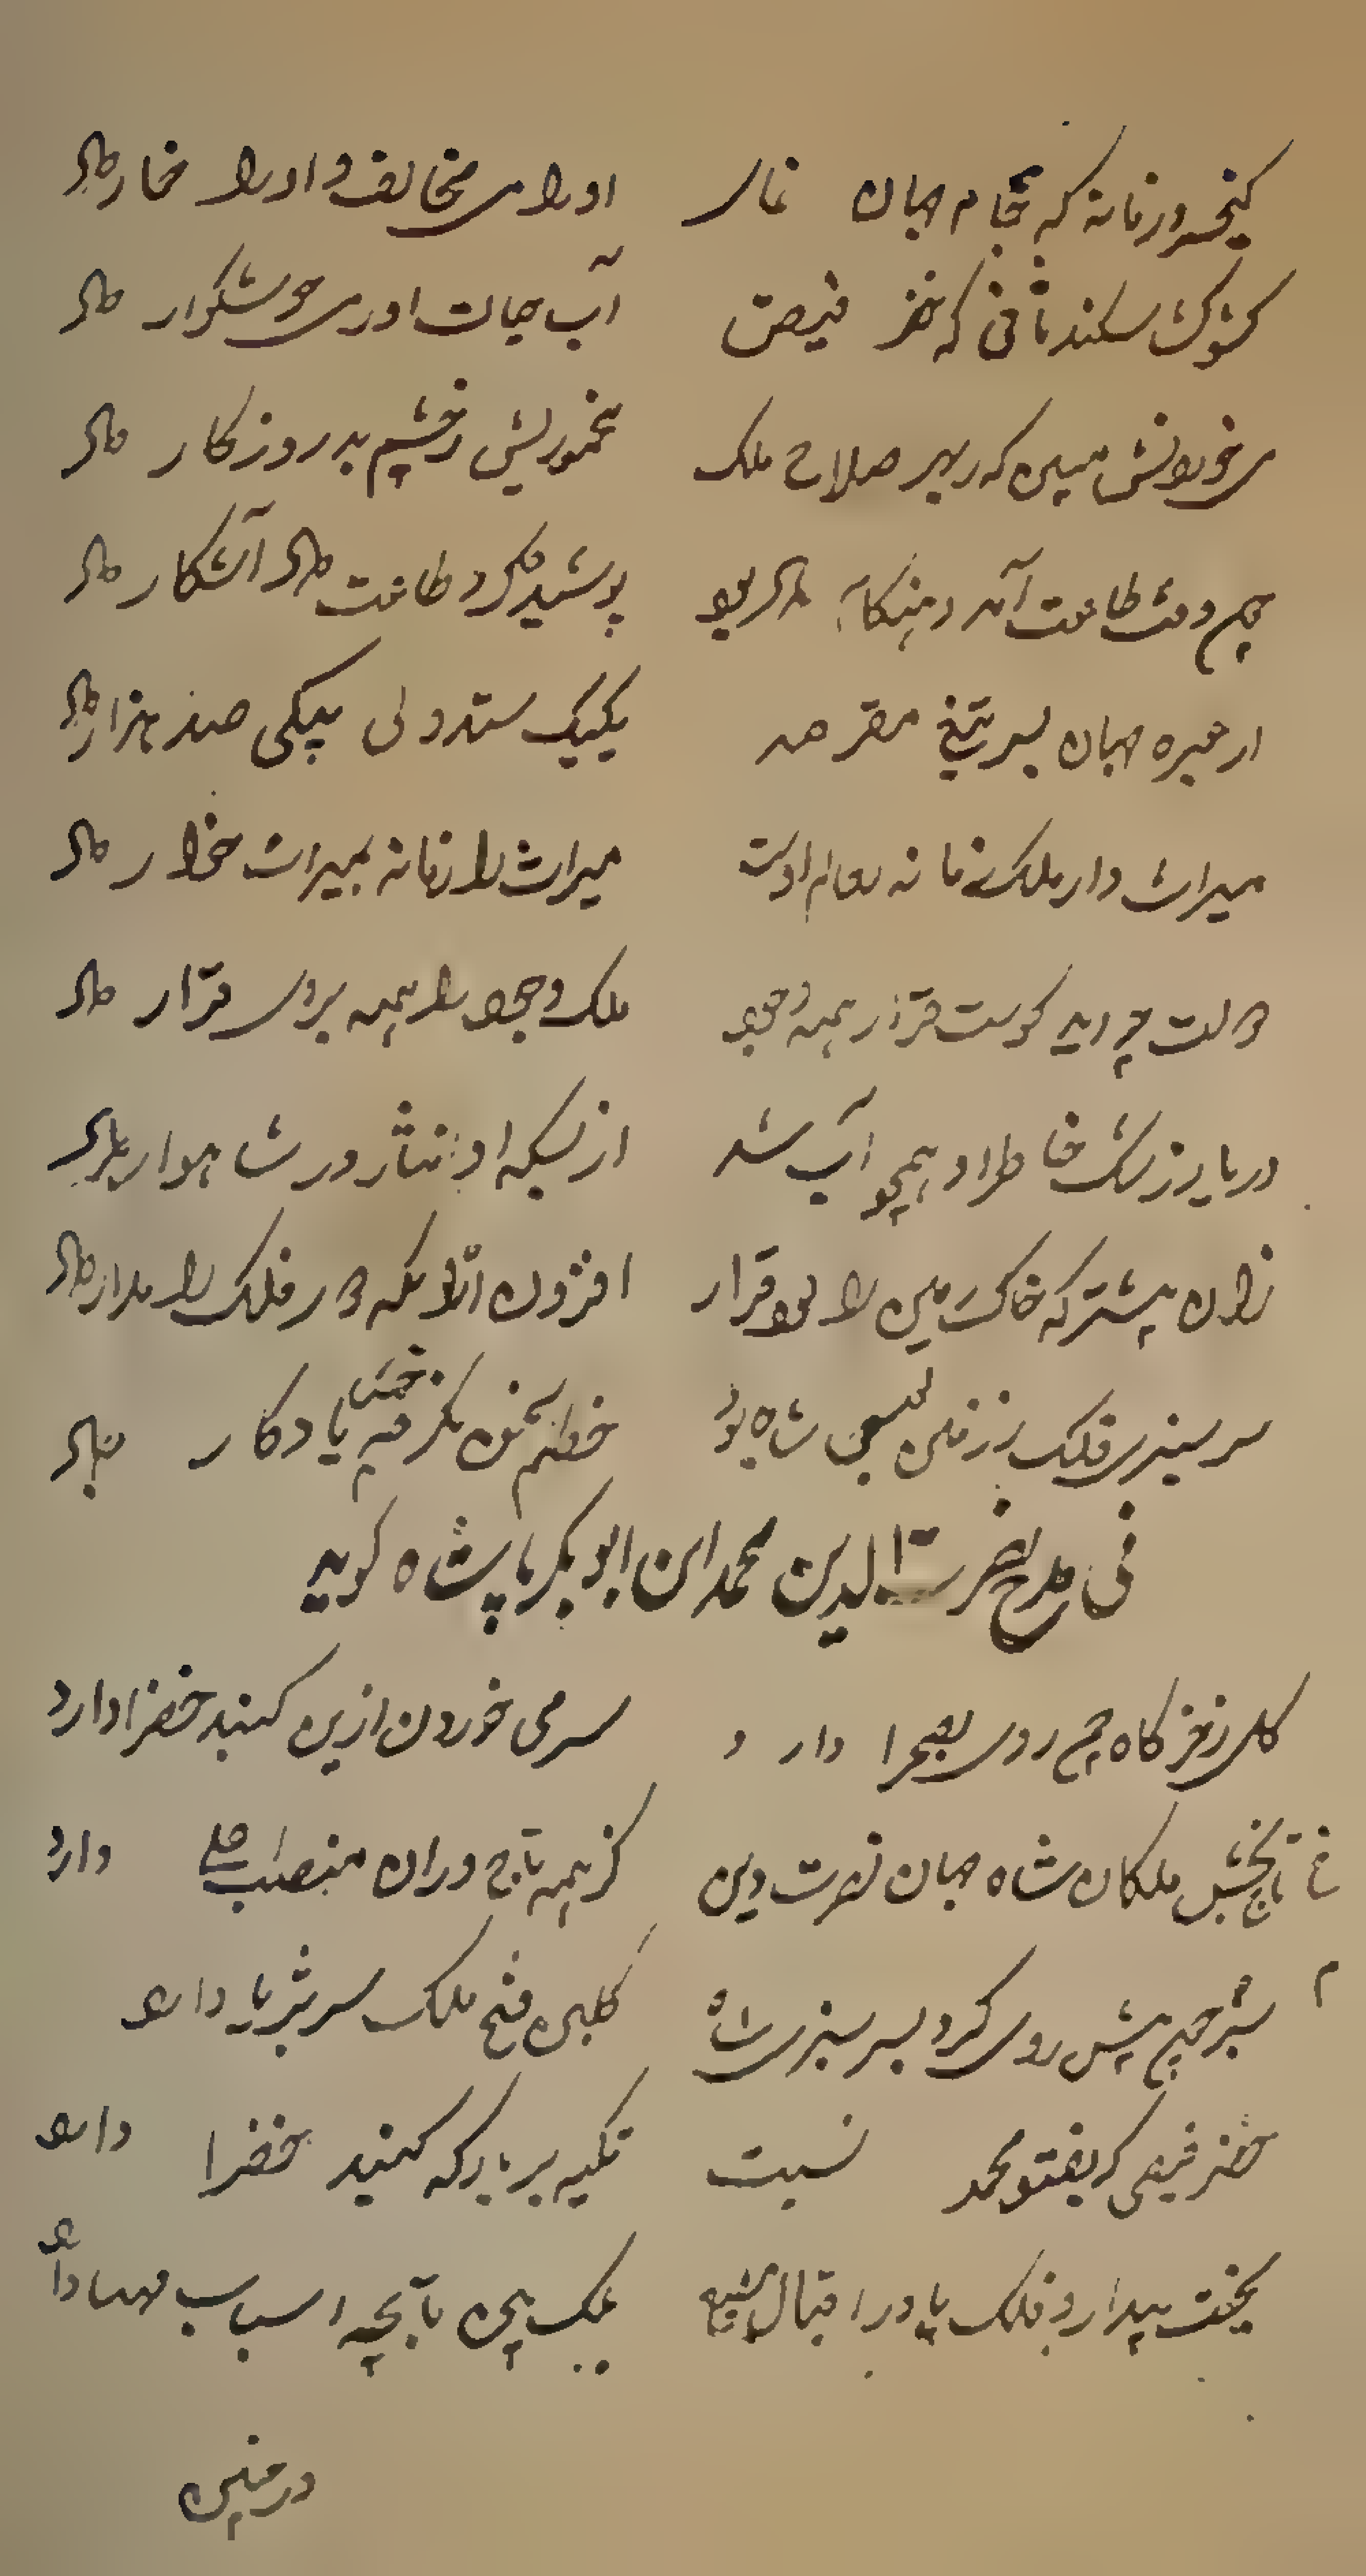 کیخسرو زمانه که بجام جهان نمای او را می مخالف و او را خمار داد
کشورکش سکندر ثانی که خضر فیض آب حیات او می خوشگوار داد
می خوردنش مبین که ز بهر صلاح ملک مخموریش ز خشم به روزگار داد
هم وقت طاعت آمد و هنگام داد بود پوشیده کرد طاعت و داد آشکار داد
از خیره جهان بسر تیغ یکیک ستد ولی بیکی صد هزار داد
میراث دار ملک زمانه بعالم اوست میراث را زمانه بمیراث خوار داد
دولت چو دید کوست قرار همه وجود ملک وجود را همه بر وی قرار داد
دریا ز رشک خاطر او همچو آب شد از بسکه او نثار در شاهوار داد
زان پیشتر که خاک زمین را بود قرار افزون از آنکه دور فلک را مدار داد
سرسبزی فلک ز شاه بود یادگار داد
فی مدح نصرت الدین محمد ابن ابوبکر پاشاه گوید
گل ز خرگاه چو روی بصحرا دارد سر می خوردن ازین گنبد خضرا دارد
تاج بخش ملکان شاه جهان نصرت دین کز همه تاج وران منصب دارد
شیر چو پیش روی کرد بسرسبزی شاه کلبن فتح ملک سر بثریا دارد
خضر فیضی که بفتوی محمد نسبت تکیه بر بارگه گنبد خضرا دارد
بخت بیدار و فلک یاور و اقبال ملک بین تا بچه اسباب مهیا دارد
در زمین